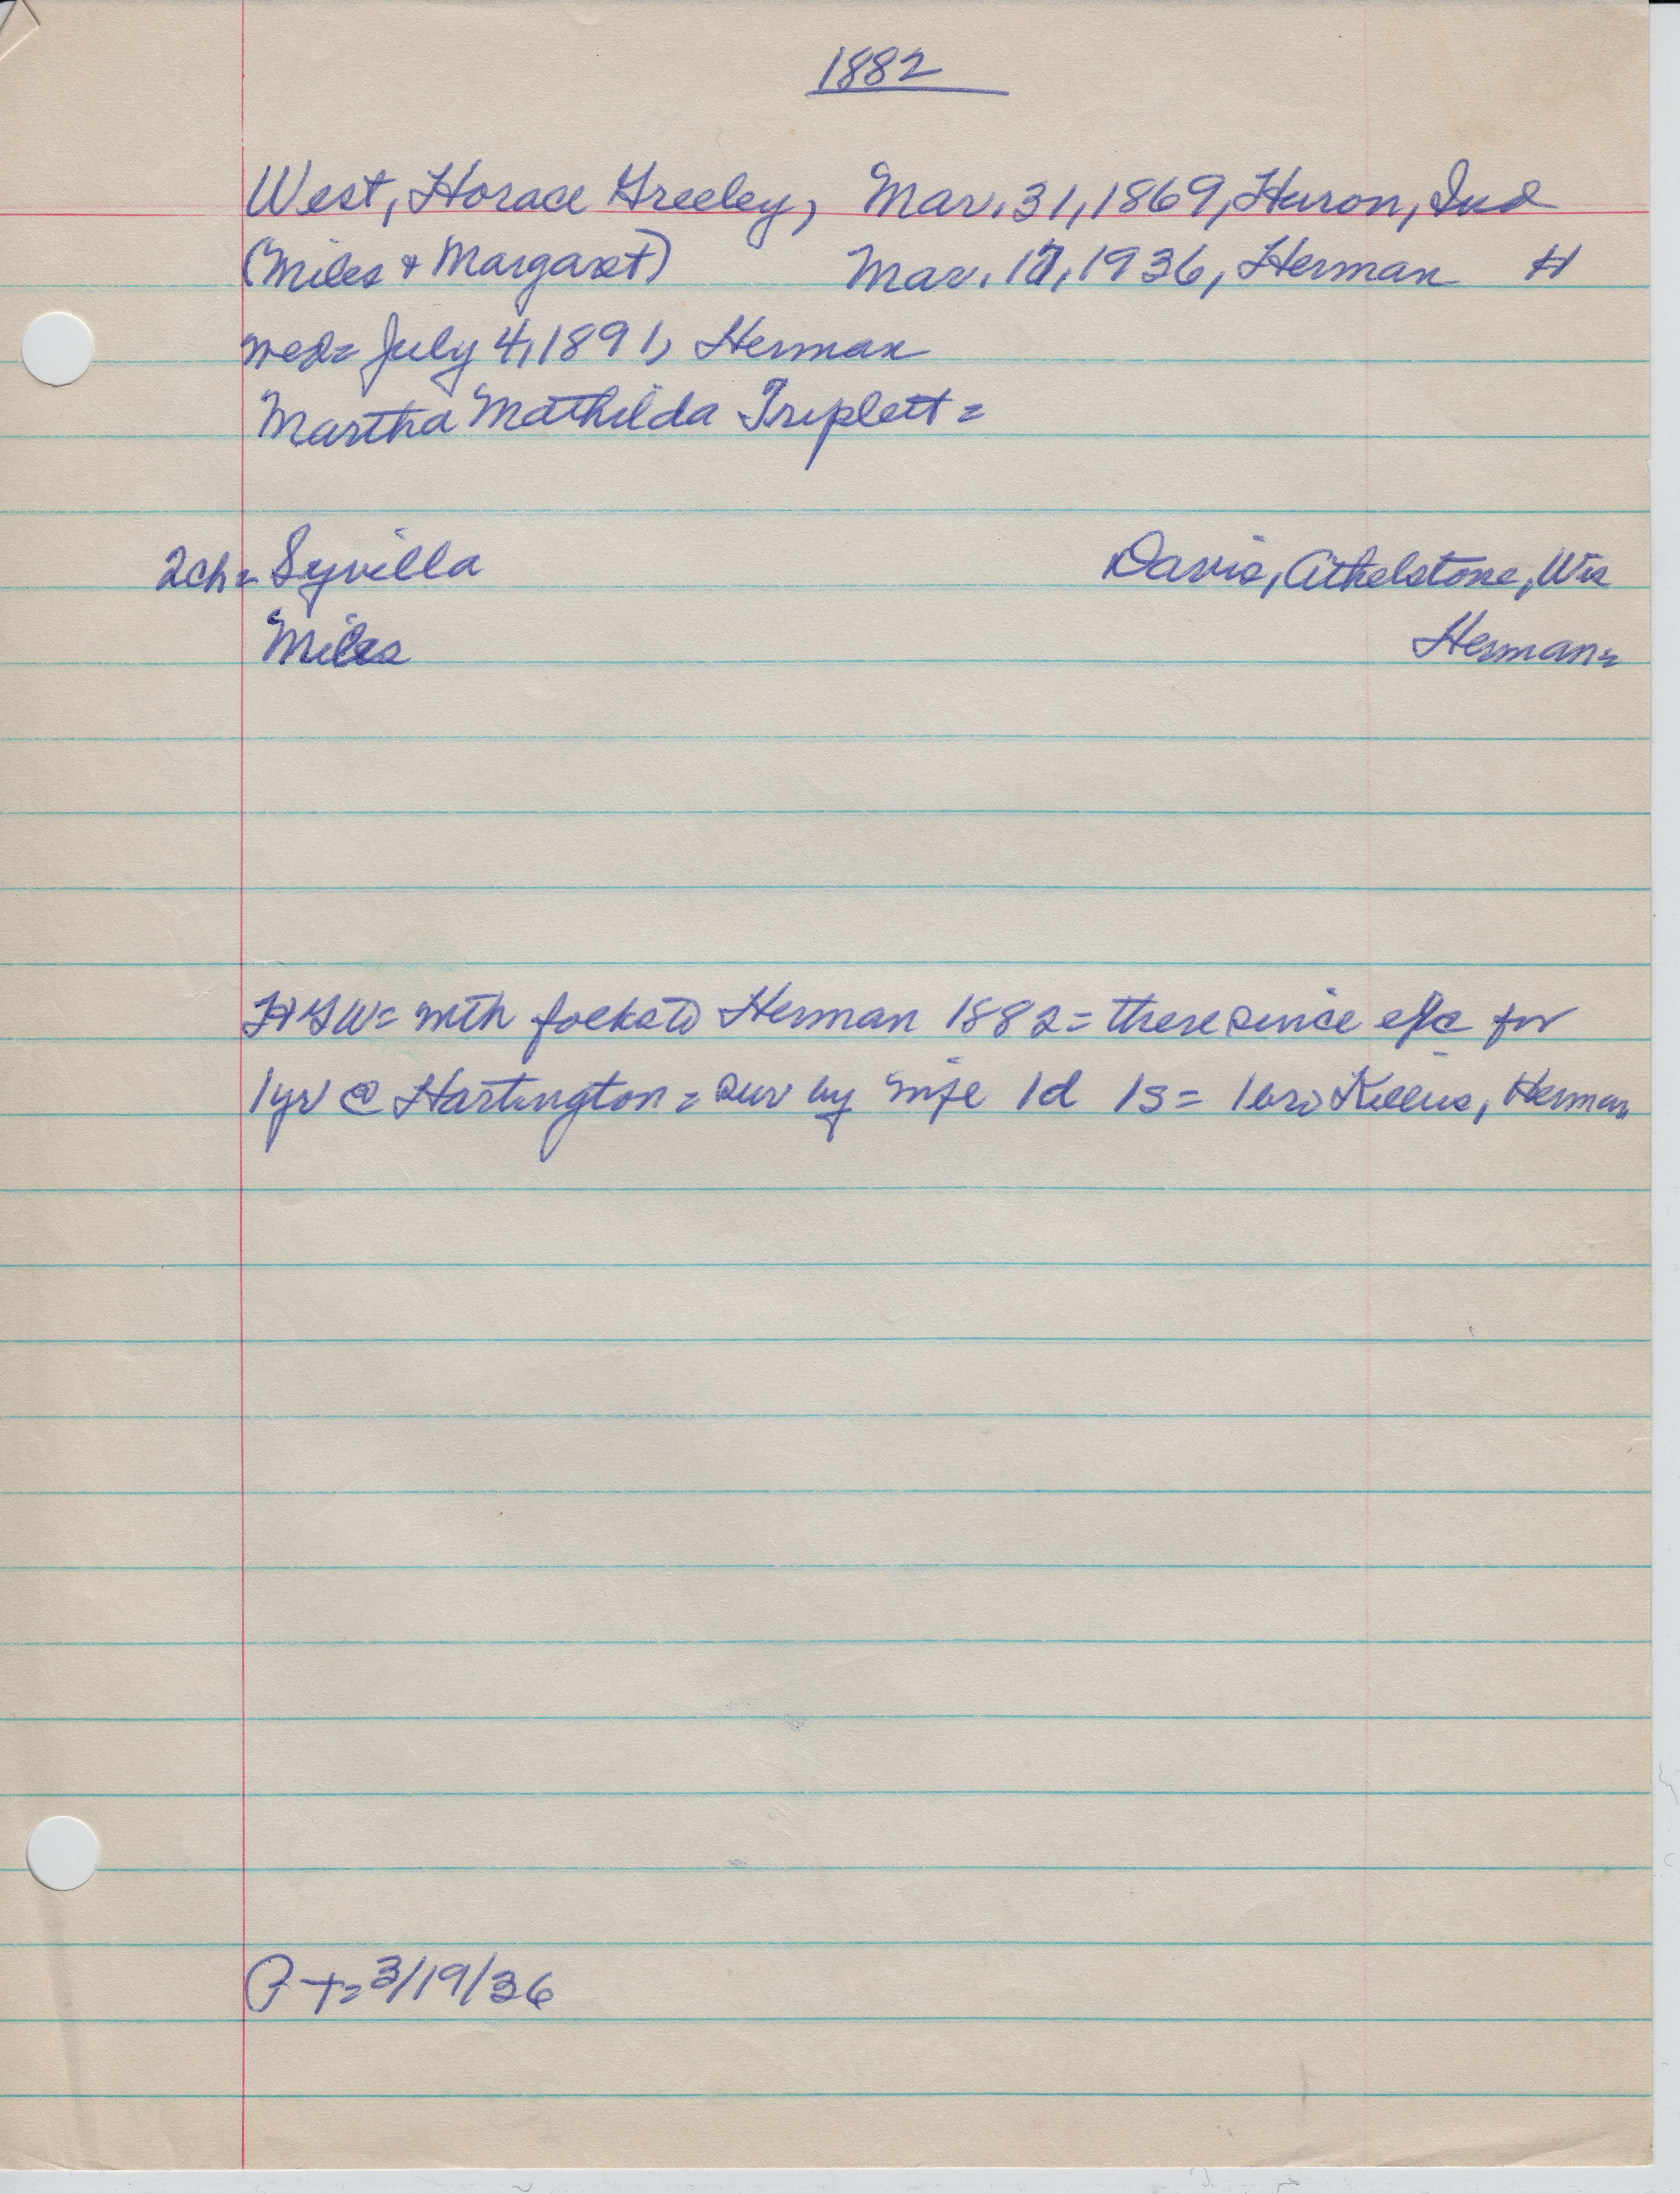 1882
West, Horace Greeley, Mar. 31, 1869, Huron, Ind
(Miles + Margaret) Mar. 17, 1936, Herman H
wed= July 4, 1891, Herman
Martha Mathilda Triplett=
2ch= Syvilla Davis, Athelstone, Wis
Miles Herman=
HGW= with folks to Herman 1882= there since exc for
1yr @ Hartington= sur by wife 1d 1s= 1bro Herman
3/19/36